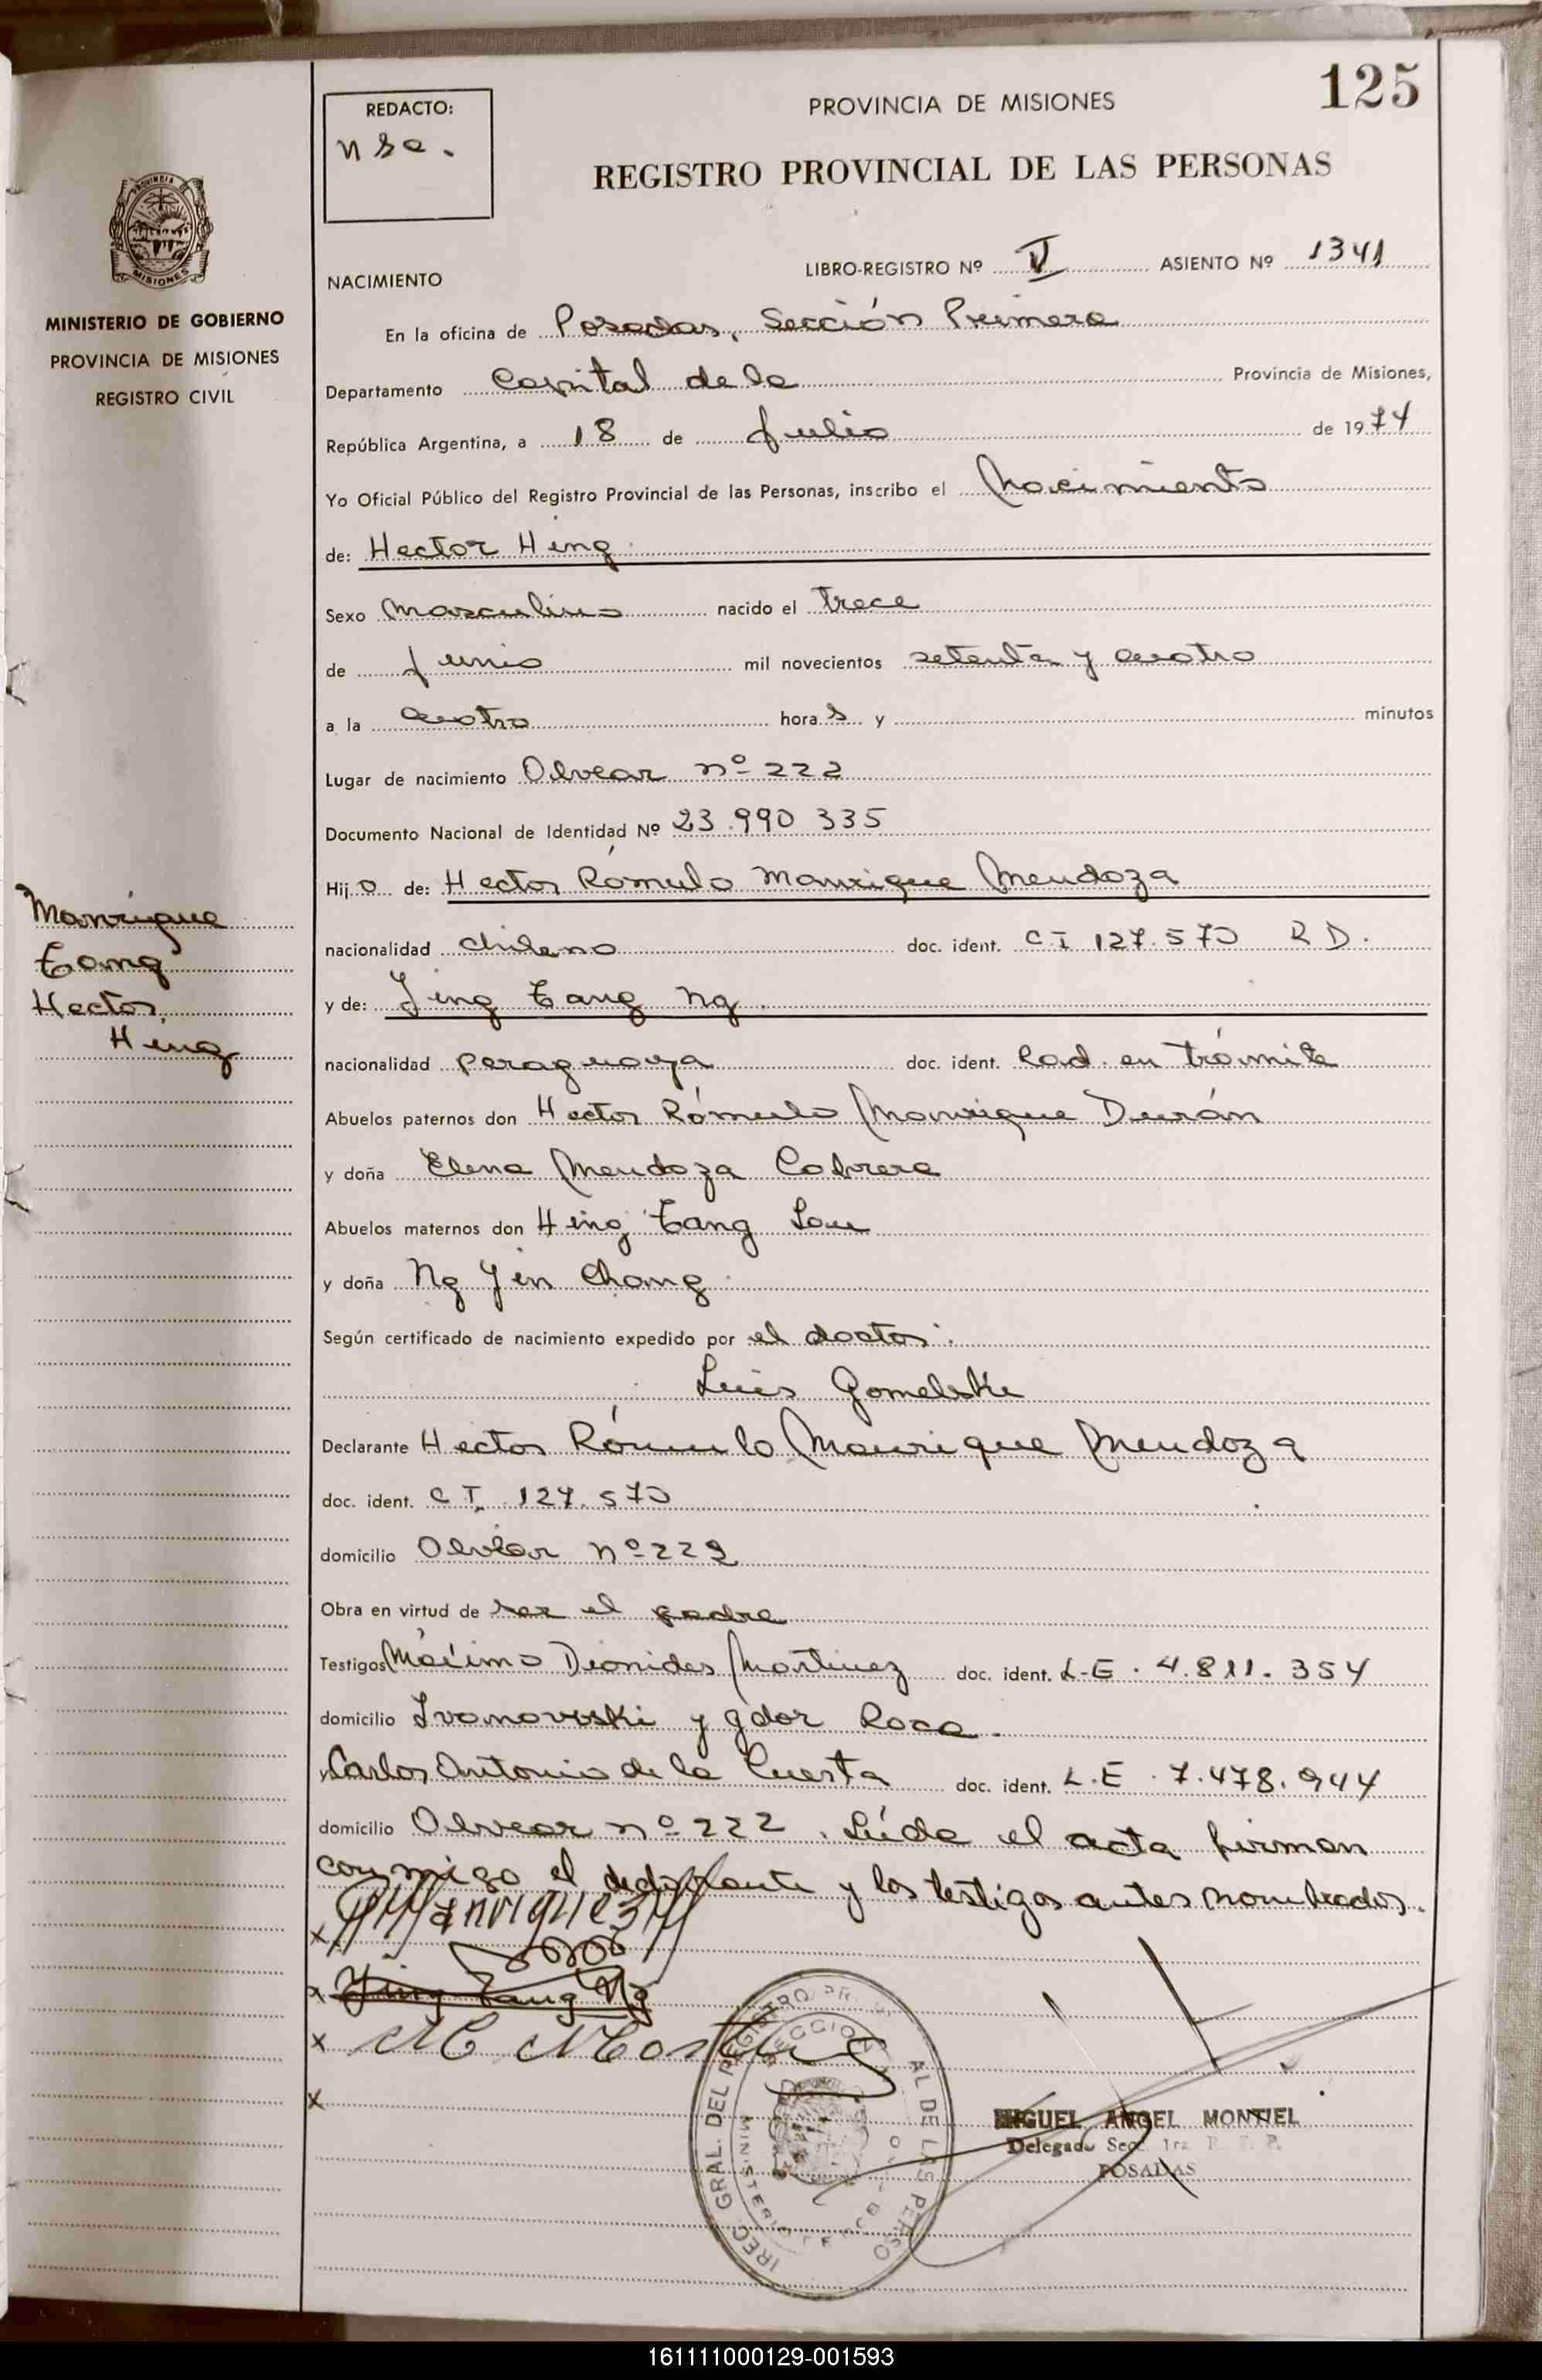 125
REDACTO:
PROVINCIA DE MISIONES
REGISTRO PROVINCIAL DE LAS PERSONAS
PROVINCIA DE
MISIONES
MINISTERIO DE GOBIERNO
PROVINCIA DE MISIONES
REGISTRO CIVIL
NACIMIENTO
LIBRO-REGISTRO Nº V ASIENTO Nº 1341
En la oficina de Posadas, Sección Primera
Departamento Capital de la Provincia de Misiones,
República Argentina, a 18 de Julio de 1974
Yo Oficial Público del Registro Provincial de las Personas, inscribo el Nacimiento
de: Hector Hing
Sexo Masculino nacido el Trece
de Junio mil novecientos setenta y cuatro
a la cuatro hora s y minutos
Lugar de nacimiento Alvear nº 222
Documento Nacional de Identidad Nº 23.990 335
Hij o de: Hector Rómulo Manrique Mendoza
nacionalidad chileno doc. ident. C I 127.570 R D.
y de: Jing Tang Ng
nacionalidad Paraguaya doc. ident. Rad. en trámite
Manrique
Tang
Hector
Hing
Abuelos paternos don Hector Rómulo Manrique Durán
y doña Elena Mendoza Cabrera
Abuelos maternos don Hing Tang Lou
y doña Ng Yin Chang
Según certificado de nacimiento expedido por el doctor:
Luis Gomelski
Declarante Hector Rómulo Manrique Mendoza
doc. ident. C I. 127.570
domicilio Alvear nº 222
Obra en virtud de ser el padre
Testigos Máximo Dionides Martinez doc. ident. L-E. 4.811.354
domicilio Ivanowski y gdor Roca.
y Carlos Antonio de la Cuesta doc. ident. L.E. 7.478.944
domicilio Alvear nº 222. Leída el acta firman
conmigo el declarante y los testigos antes nombrados.
x Manrique
x Jing Tang Ng
x
x
MIGUEL ANGEL MONTIEL
Delegado Sec. 1ra
POSADAS
161111000129-001593